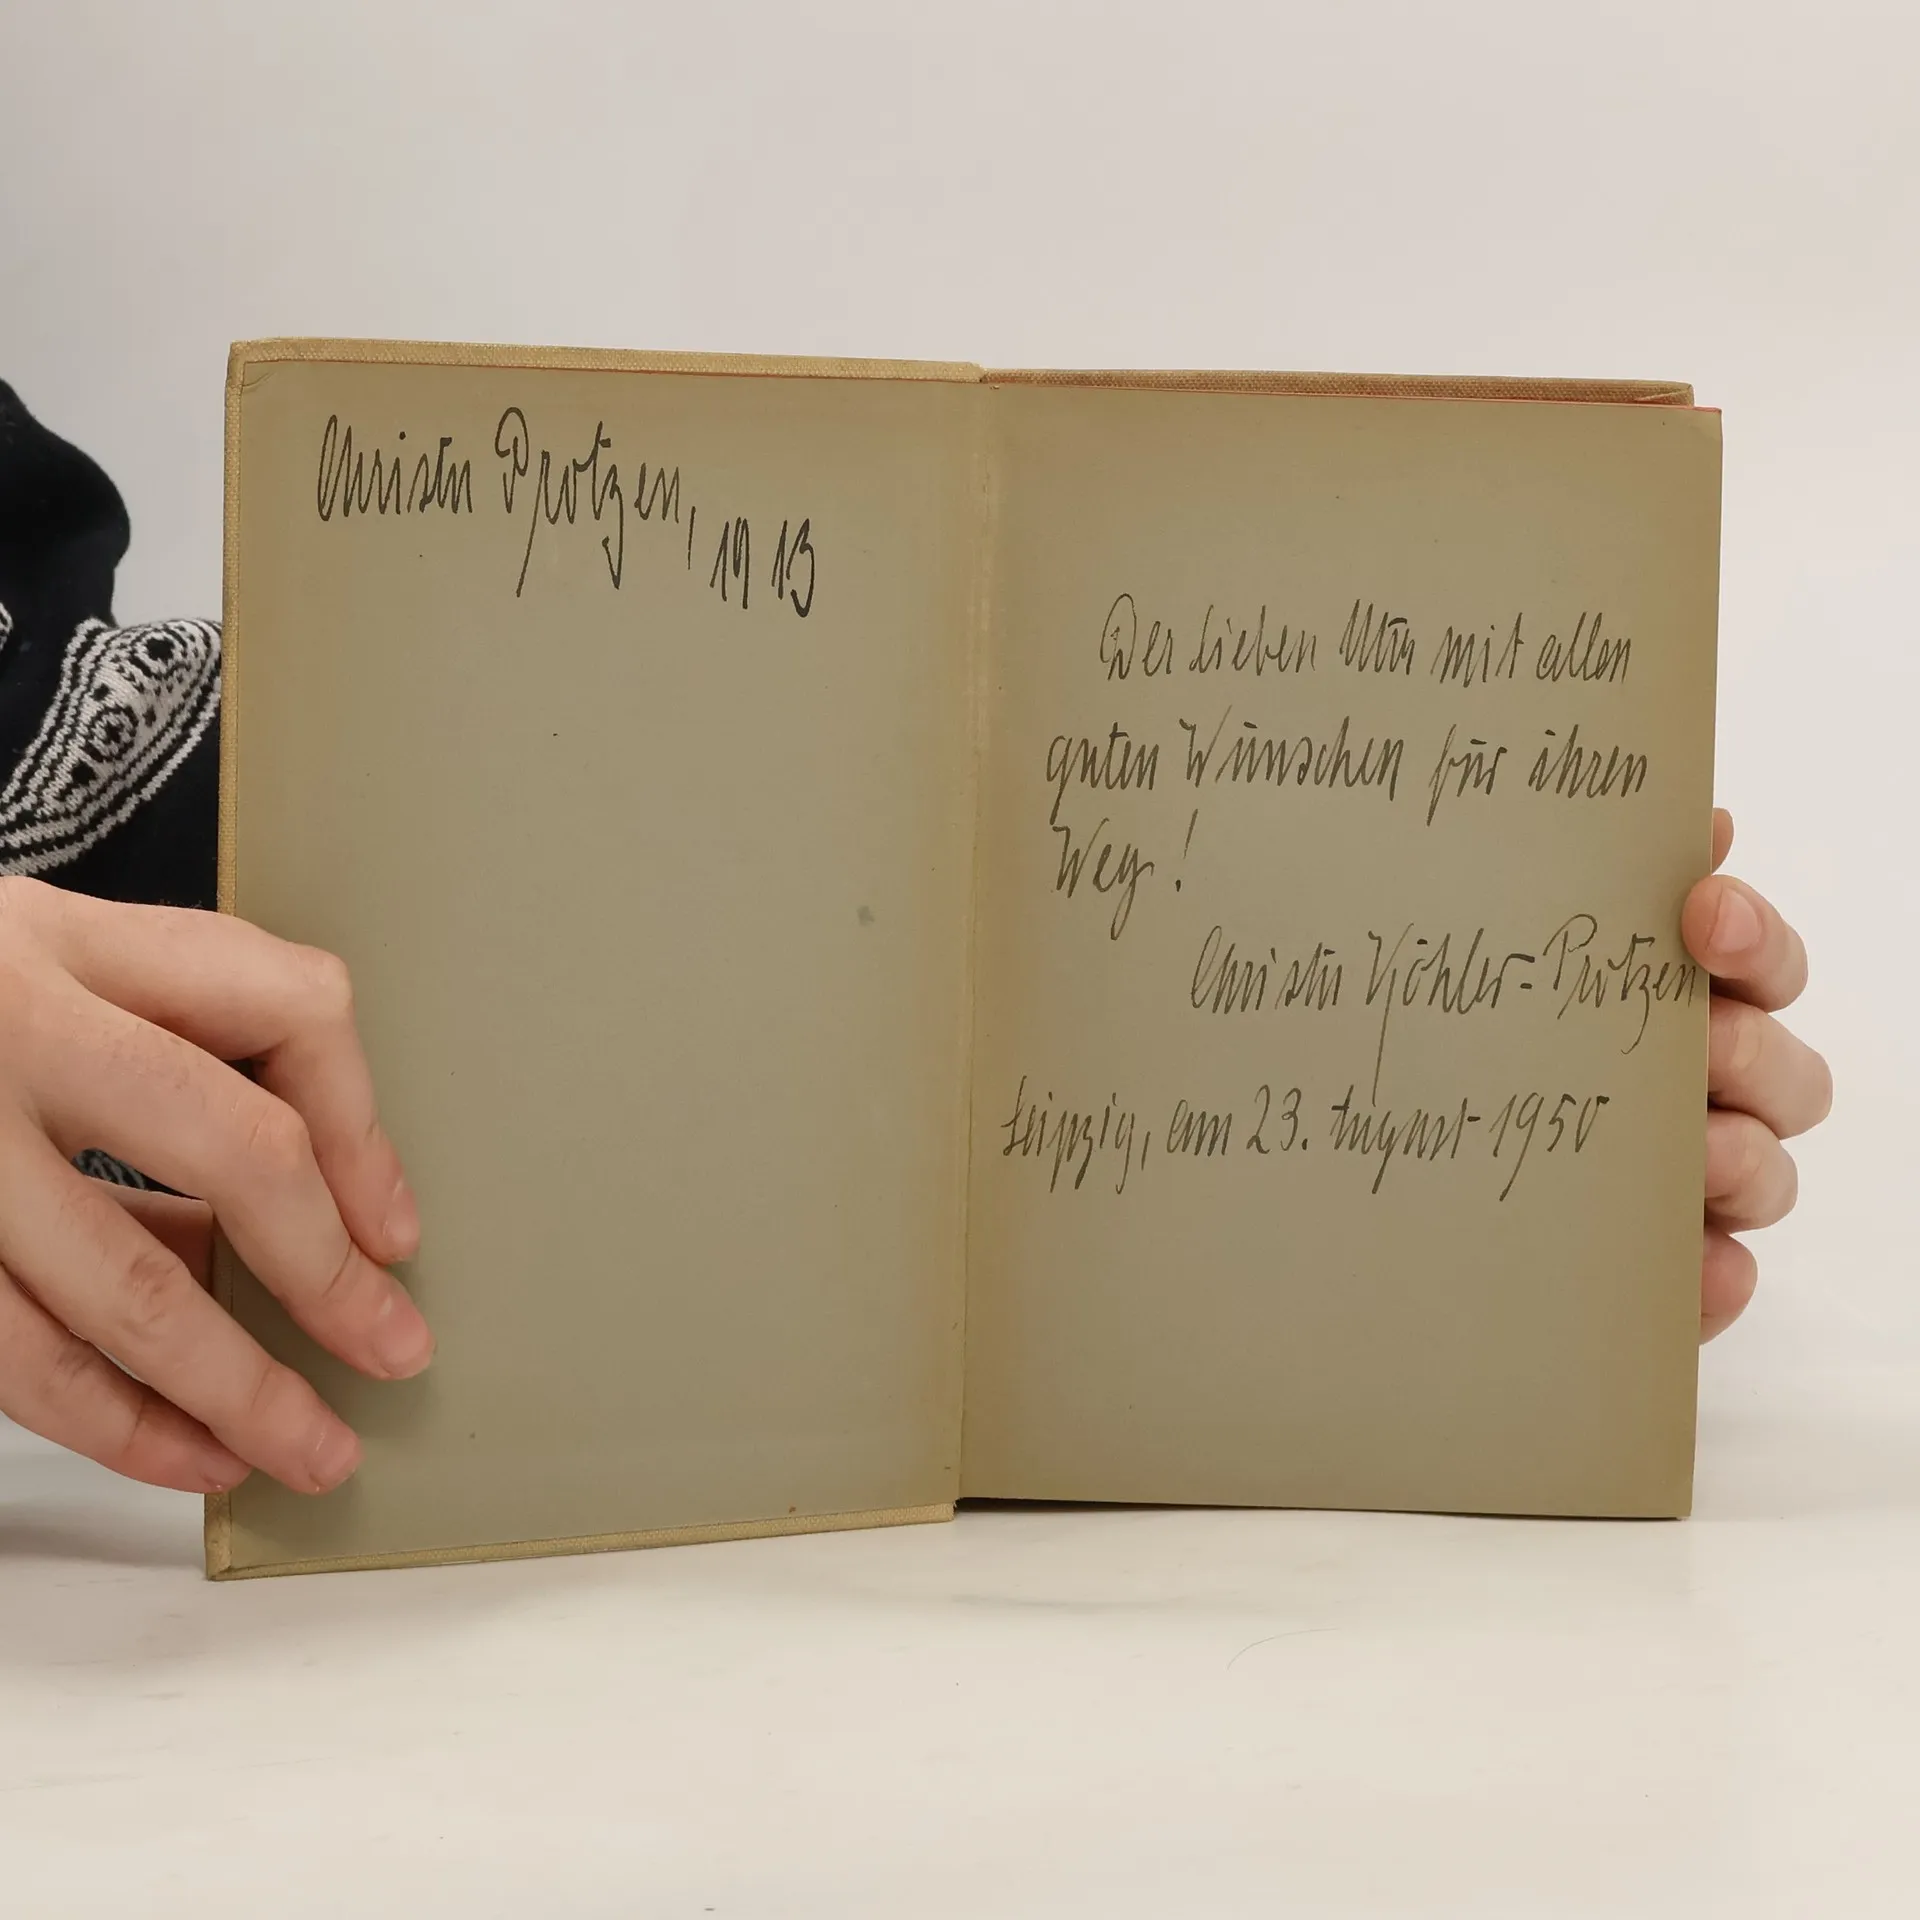 Christa Protzen,
1913
Der lieben Uta mit allen
guten Wünschen für ihren
Weg!
Christa Köhler-Protzen
Leipzig, am 23. August 1950